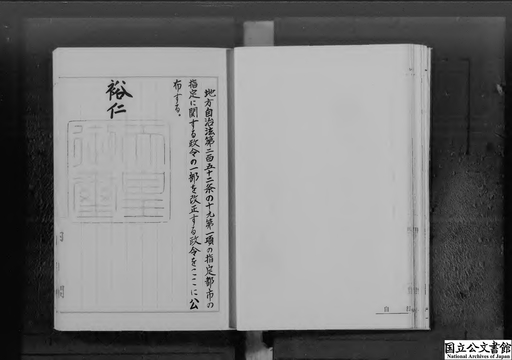 地方自治法第二百五十二条の十九第一項の指定都市の
指定に関する政令の一部を改正する政令をここに公
布する。
裕仁
天皇御璽
国立公文書館
National Archives of Japan